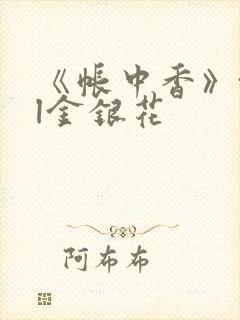 《帐中香》
|金银花
阿布布